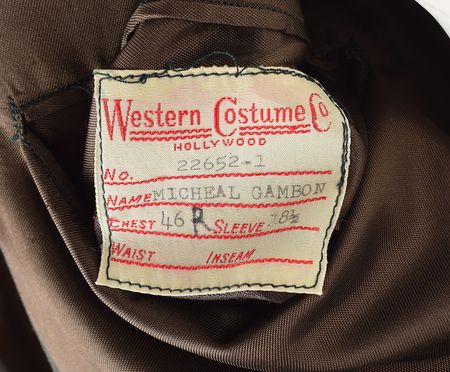 Western Costume Co
HOLLYWOOD
NO. 22652-1
NAME MICHEAL GAMBON
CHEST 46 R SLEEVE 18½
WAIST INSEAM